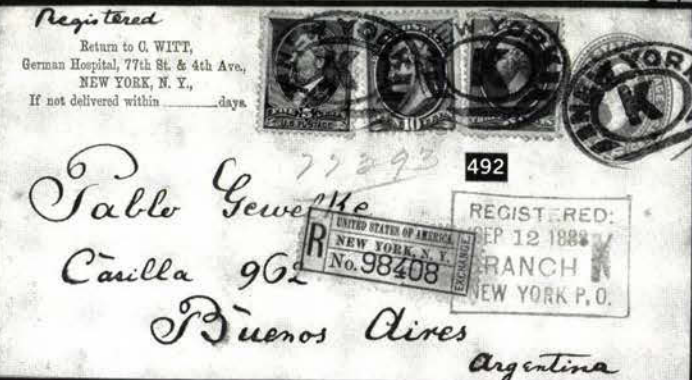 Registered
Return to C. WITT,
German Hospital, 77th St. & 4th Ave.,
NEW YORK, N. Y.,
If not delivered within ______ days.
NEW YORK
K
U.S. POSTAGE
10
NEW YORK
K
NEW YORK
K
77393
492
Pablo Gewelke
Casilla 962
Buenos Aires
Argentina
R
UNITED STATES OF AMERICA.
NEW YORK, N. Y.
No. 98408
EXCHANGE
REGISTERED:
SEP 12 1888
BRANCH K
NEW YORK P. O.